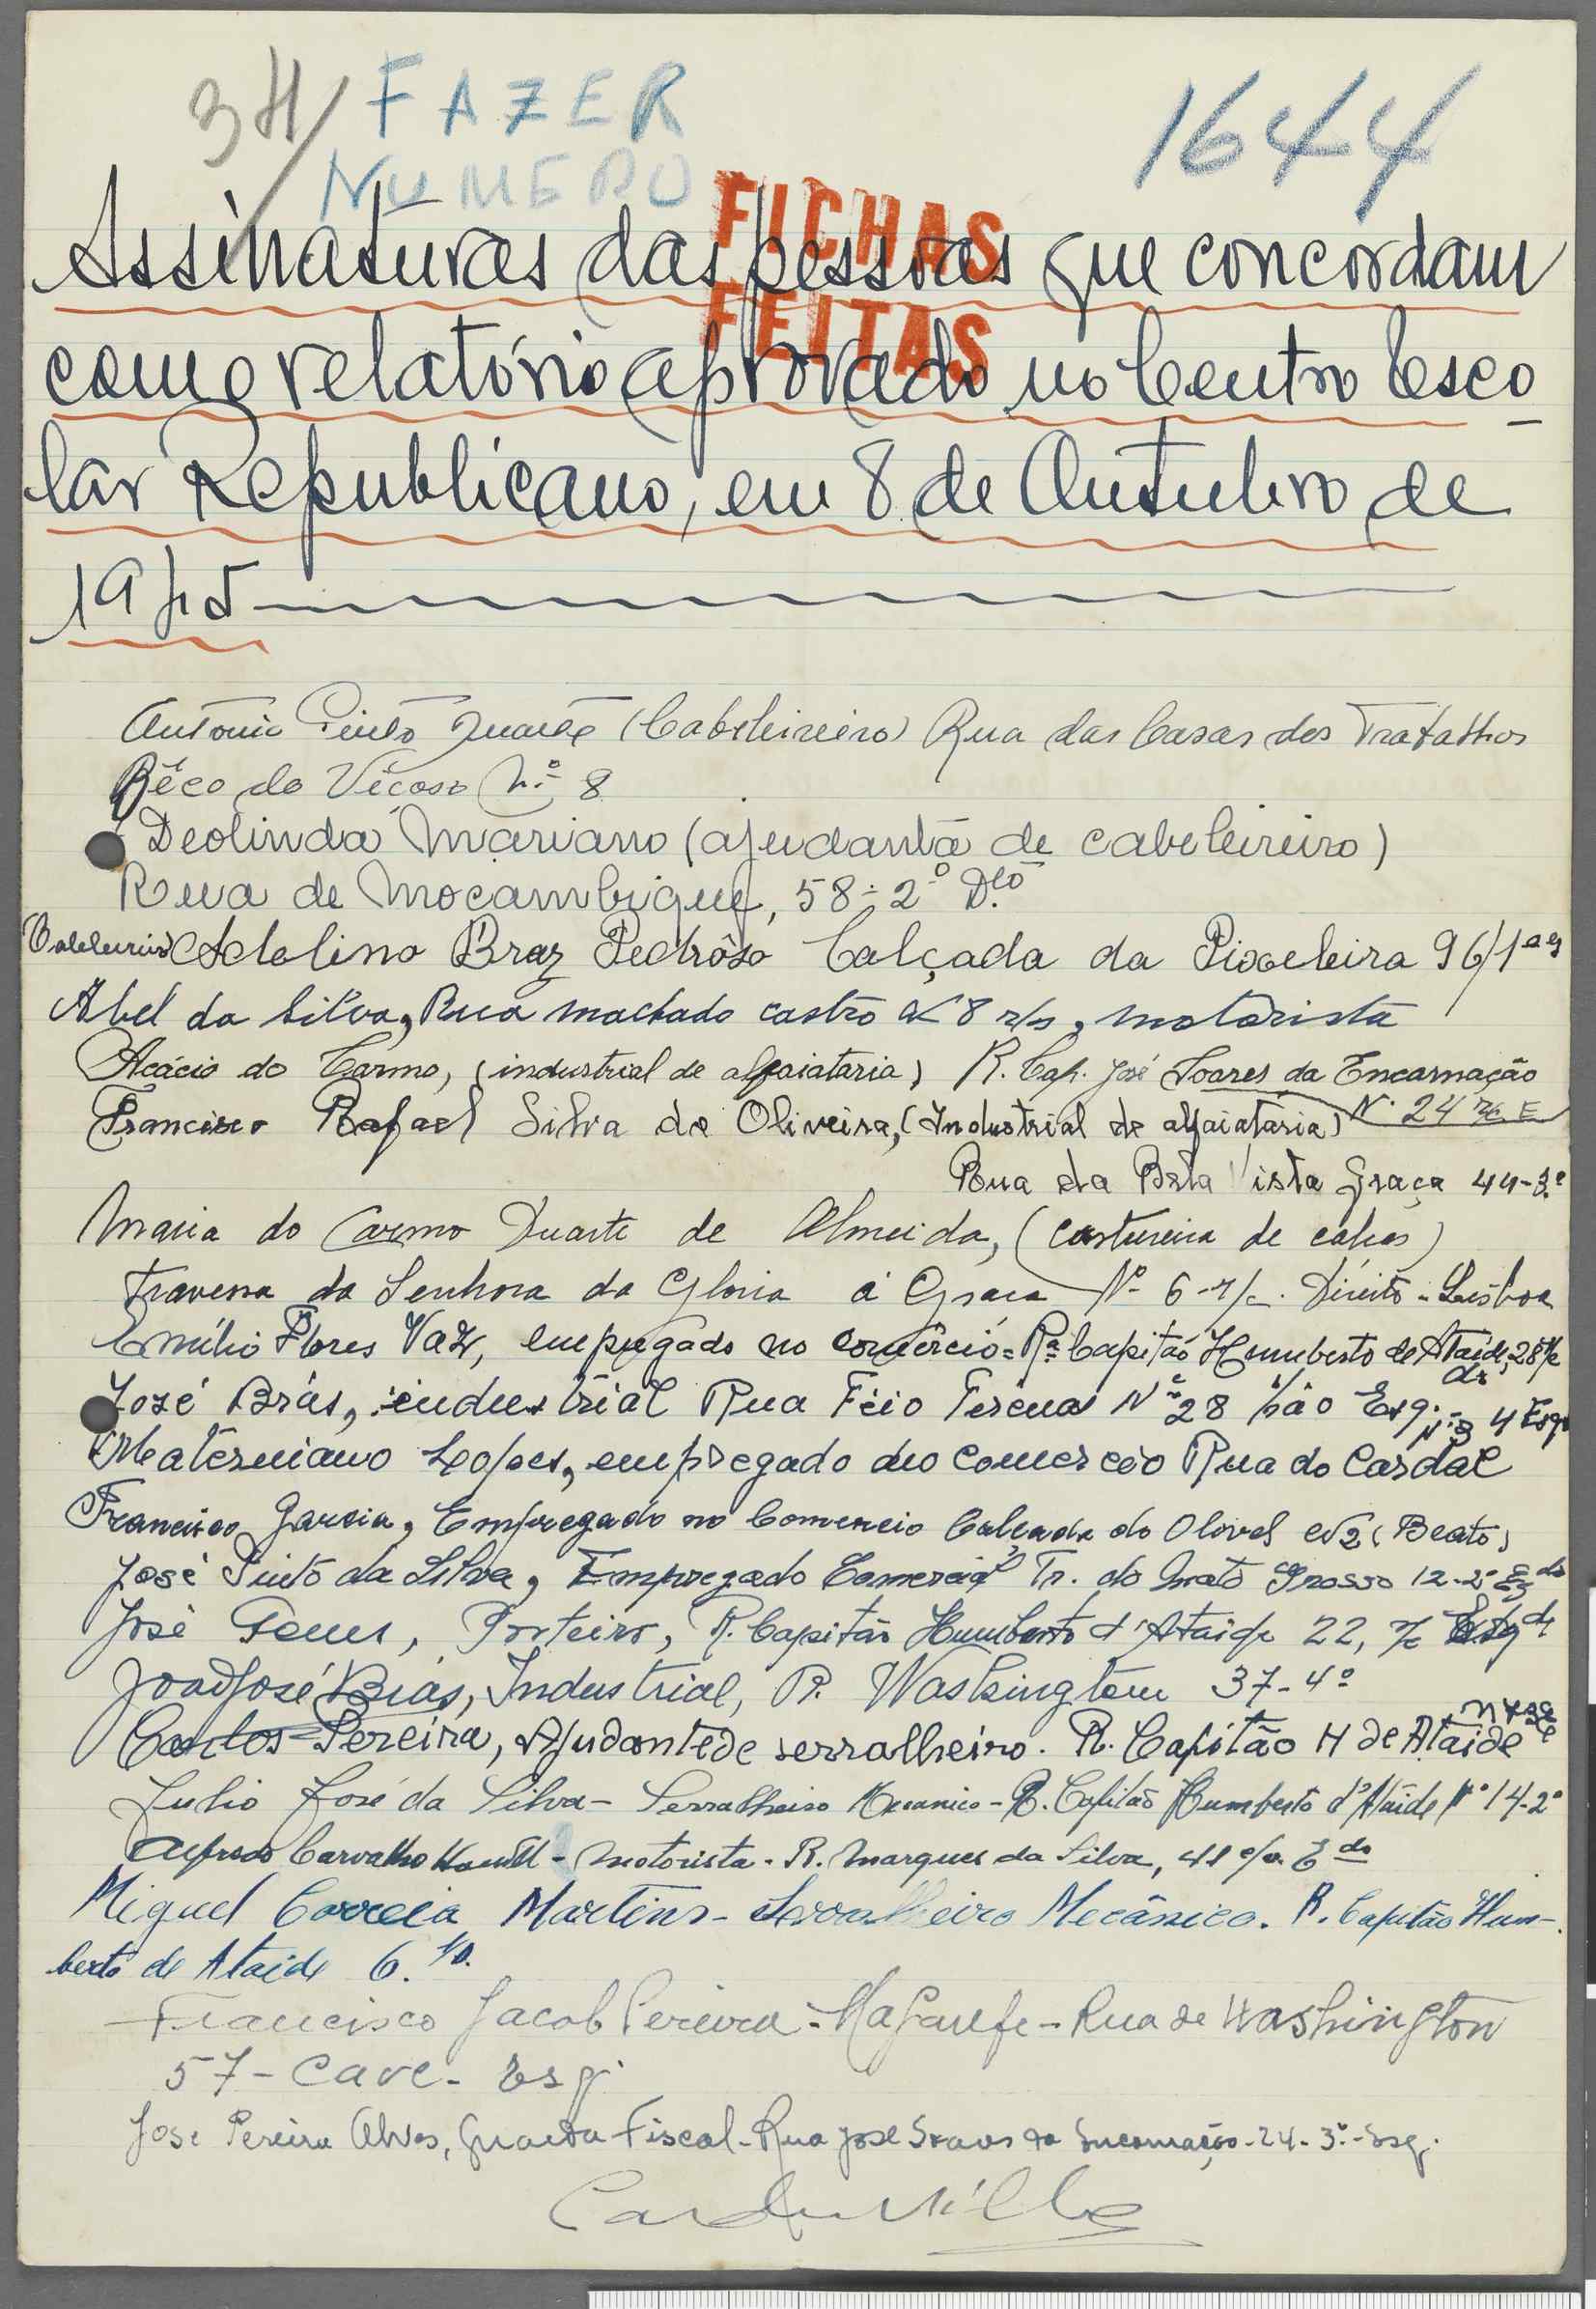 34/ FAZER
NUMERO
1644
FICHAS
FEITAS
Assinaturas das pessoas que concordam
com o relatório aprovado no Centro Esco
lar Republicano, em 8 de Outubro de
1945
António Pinto Duarte (Cabeleireiro) Rua das Casas dos Trabalhos
Bêco do Viçoso Nº 8
Deolinda Mariano (ajudanta de cabeleireiro)
Rua de Moçambique, 58-2º Dto
Adelino Braz Pedrôso Calçada da Picheleira 96/1º
Abel da Silva, Rua machado castro 8 r/c, motorista
Acácio do Carmo, (industrial de alfaiataria) R. Cap. José Soares da Encarnação
Nº 24 r/c E
Francisco Rafael Silva de Oliveira, (Industrial de alfaiataria)
Rua da Bela Vista Graça 44-3.º
Maria do Carmo Duarte de Almeida, (costureira de calças)
Travessa da Senhora da Gloria á Graça Nº 6-r/c. Direito - Lisboa
Emílio Flores Vaz, empregado no comércio = Rª Capitão Humberto de Ataíde, 28 r/c
José Brás, industrial Rua Feio Terenas Nº 28 Esq.
Materniano Lopes, empregado no comercio Rua do Cardal
Nº 3 4 Esq
Francisco Garcia, Empregado no Comercio Calçada do Olival 2 (Beato)
José Pinto da Silva, Empregado Comercial Tr. do Mato Grosso 12-2º Esqdo
José Gomes, Porteiro, R. Capitão Humberto d'Ataide 22, r/c
João José Brás, Industrial, R. Washington 37-4º
Carlos Pereira, Ajudante de serralheiro. R. Capitão H de Ataide
Julio José da Silva - Serralheiro Mecanico - R. Capitão Humberto d'Ataíde Nº 14-2º
Alfredo Carvalho - Motorista - R. Marques da Silva, 41 Edo
Miguel Correia Martins - Serralheiro Mecânico. R. Capitão Hum-
berto de Ataide 6.
Francisco Jacob Pereira - Magarefe - Rua de Washington
57 - Cave - Esq.
José Pereira Alves, Guarda Fiscal - Rua José Soares da Encarnação - 24 - 3º - Esq.